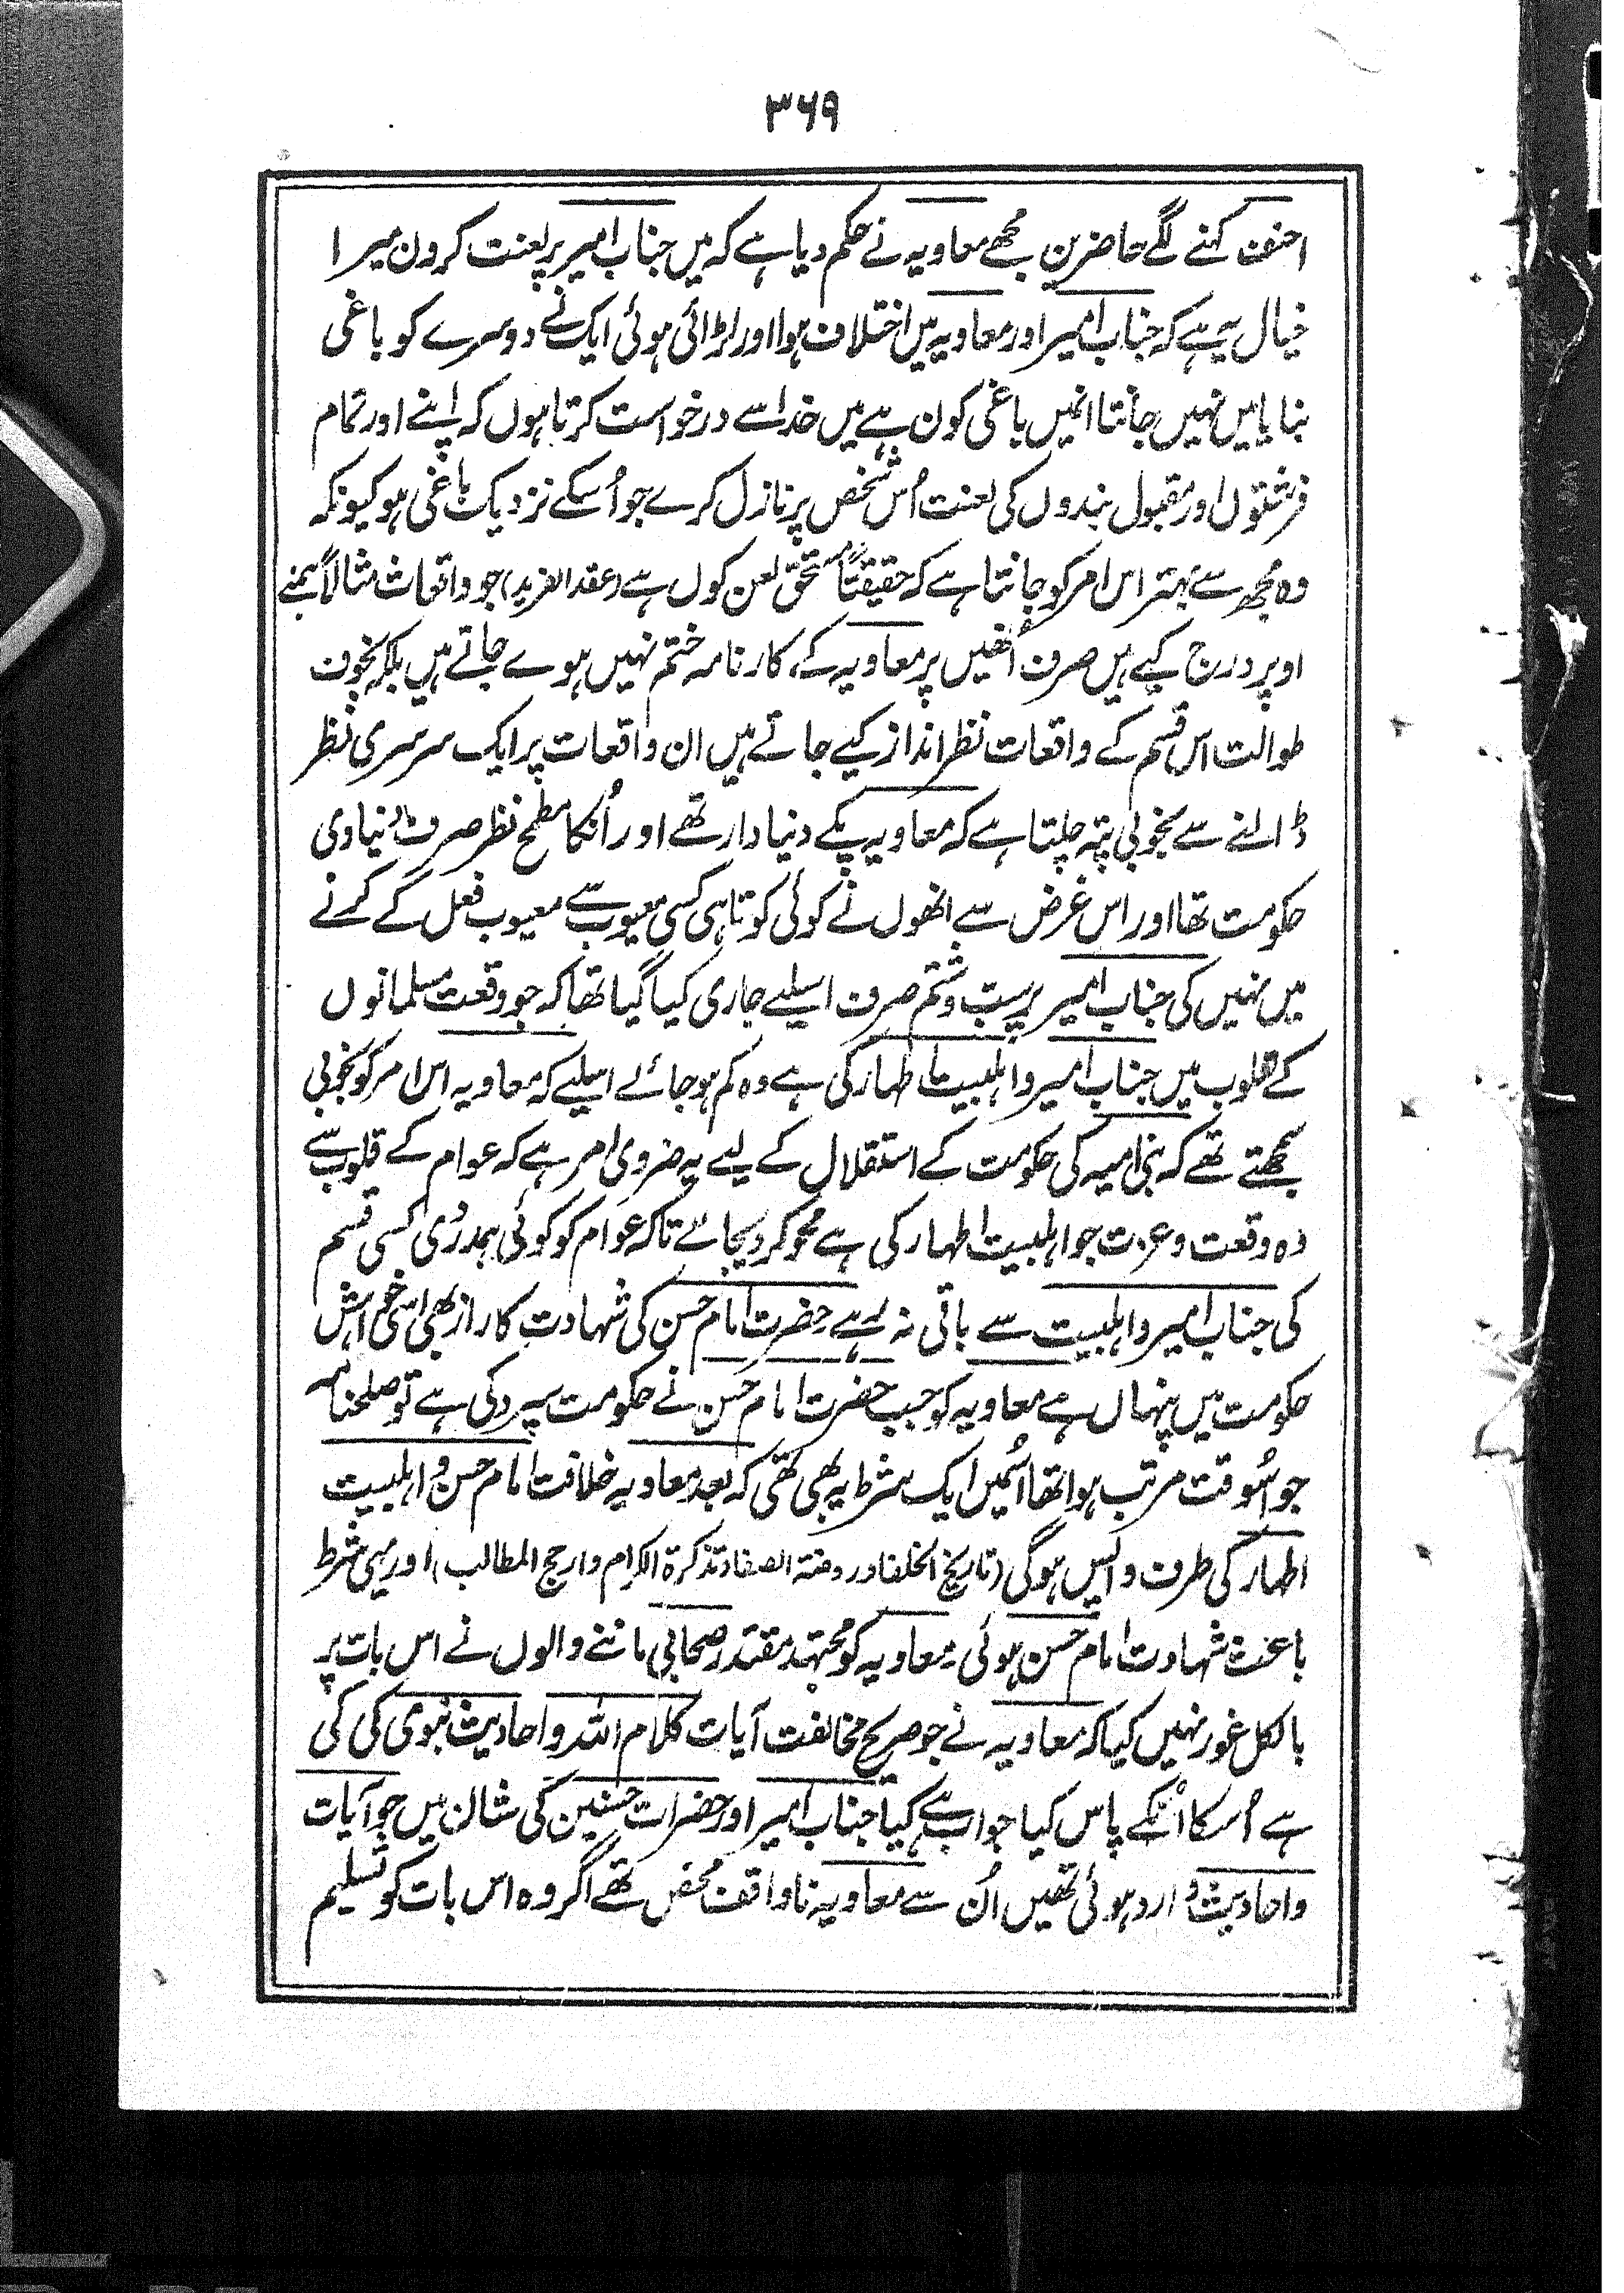 ۳۶۹
احنف کہنے لگے حاضرین مجھے معاویہ نے حکم دیا ہے کہ میں جناب امیر پر لعنت کرون میرا
خیال یہ ہے کہ جناب امیر اور معاویہ میں اختلاف ہوا اور لڑائی ہوئی ایک نے دوسرے کو باغی
بنایا میں نہیں جانتا انمیں باغی کون ہے میں خدا سے درخواست کرتا ہوں کہ اپنے اور تمام
فرشتوں اور مقبول بندوں کی لعنت اُس شخص پر نازل کرے جو اُسکے نزدیک باغی ہو کیونکہ
وہ مجھ سے بہتر اس امر کو جانتا ہے کہ حقیقتاً مستحق لعن کون ہے (عقد الفرید) جو واقعات مثالاً ہمنے
اوپر درج کیے ہیں صرف اُنھیں پر معاویہ کے کارنامہ ختم نہیں ہوے جاتے ہیں بلکہ بخوف
طوالت اس قسم کے واقعات نظر انداز کیے جاتے ہیں ان واقعات پر ایک سرسری نظر
ڈالنے سے بخوبی پتہ چلتا ہے کہ معاویہ پکے دنیا دار تھے اور اُنکا مطمح نظر صرف دُنیاوی
حکومت تھا اور اس غرض سے انھوں نے کوئی کوتاہی کسی معیوب سے معیوب فعل کے کرنے
میں نہیں کی جناب امیر پر سب و شتم صرف اسیلیے جاری کیا گیا تھا کہ جو وقعت مسلمانوں
کے قلوب میں جناب امیر و اہلبیت اطہار کی ہے وہ کم ہو جائے اسیلیے کہ معاویہ اس امر کو بخوبی
سمجھتے تھے کہ بنی امیہ کی حکومت کے استقلال کے لیے یہ ضروری امر ہے کہ عوام کے قلوب سے
وہ وقعت و عزت جو اہلبیت اطہار کی ہے محو کر دیجائے تاکہ عوام کو کوئی ہمدردی کسی قسم
کی جناب امیر و اہلبیت سے باقی نہ رہے حضرت امام حسن کی شہادت کا راز بھی اسی خواہش
حکومت میں پنہاں ہے معاویہ کو جب حضرت امام حسن نے حکومت سپرد کی ہے تو صلحنامہ
جو اُسوقت مرتب ہوا تھا اُسمیں ایک شرط یہ بھی تھی کہ بعد معاویہ خلافت امام حسن و اہلبیت
اطہار کی طرف واپس ہوگی (تاریخ الخلفا و روضۃ الصفا و تذکرۃ الکرام و ارجح المطالب) اور یہی شرط
باعث شہادت امام حسن ہوئی معاویہ کو مجتہد مقتدر صحابی ماننے والوں نے اس بات پر
بالکل غور نہیں کیا کہ معاویہ نے جو صریح مخالفت آیات کلام اللہ و احادیث نبوی کی کی
ہے اُسکا اُنکے پاس کیا جواب ہے کیا جناب امیر اور حضرات حسنین کی شان میں جو آیات
و احادیث وارد ہوئی تھیں اُن سے معاویہ ناواقف محض تھے اگر وہ اس بات کو تسلیم